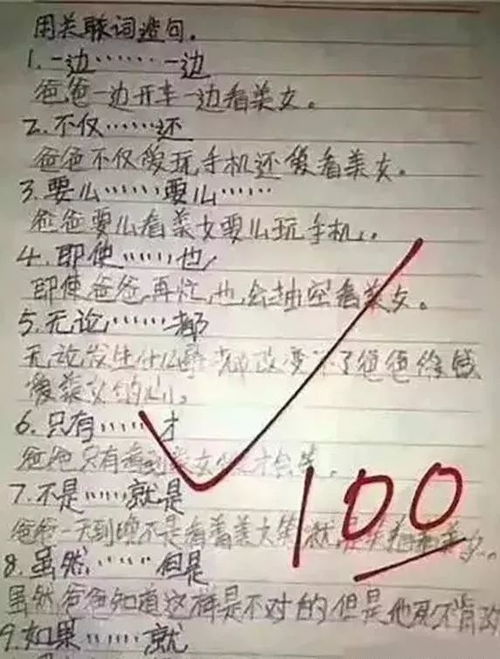 用关联词造句.
1.一边……一边
爸爸一边开车一边看美女。
2.不仅……还
爸爸不仅爱玩手机还爱看美女。
3.要么……要么……
爸爸要么看美女要么玩手机。
4.即使……也
即使爸爸再忙,也会抽空看美女。
5.无论……都
无论发生什么事都改变不了爸爸
爱美女的心。
6.只有……才
爸爸只有看到美女才会笑。
7.不是……就是
爸爸一天到晚不是看着美女笑就是
8.虽然……但是
虽然爸爸知道这样是不对的但是他
9.如果……就
100